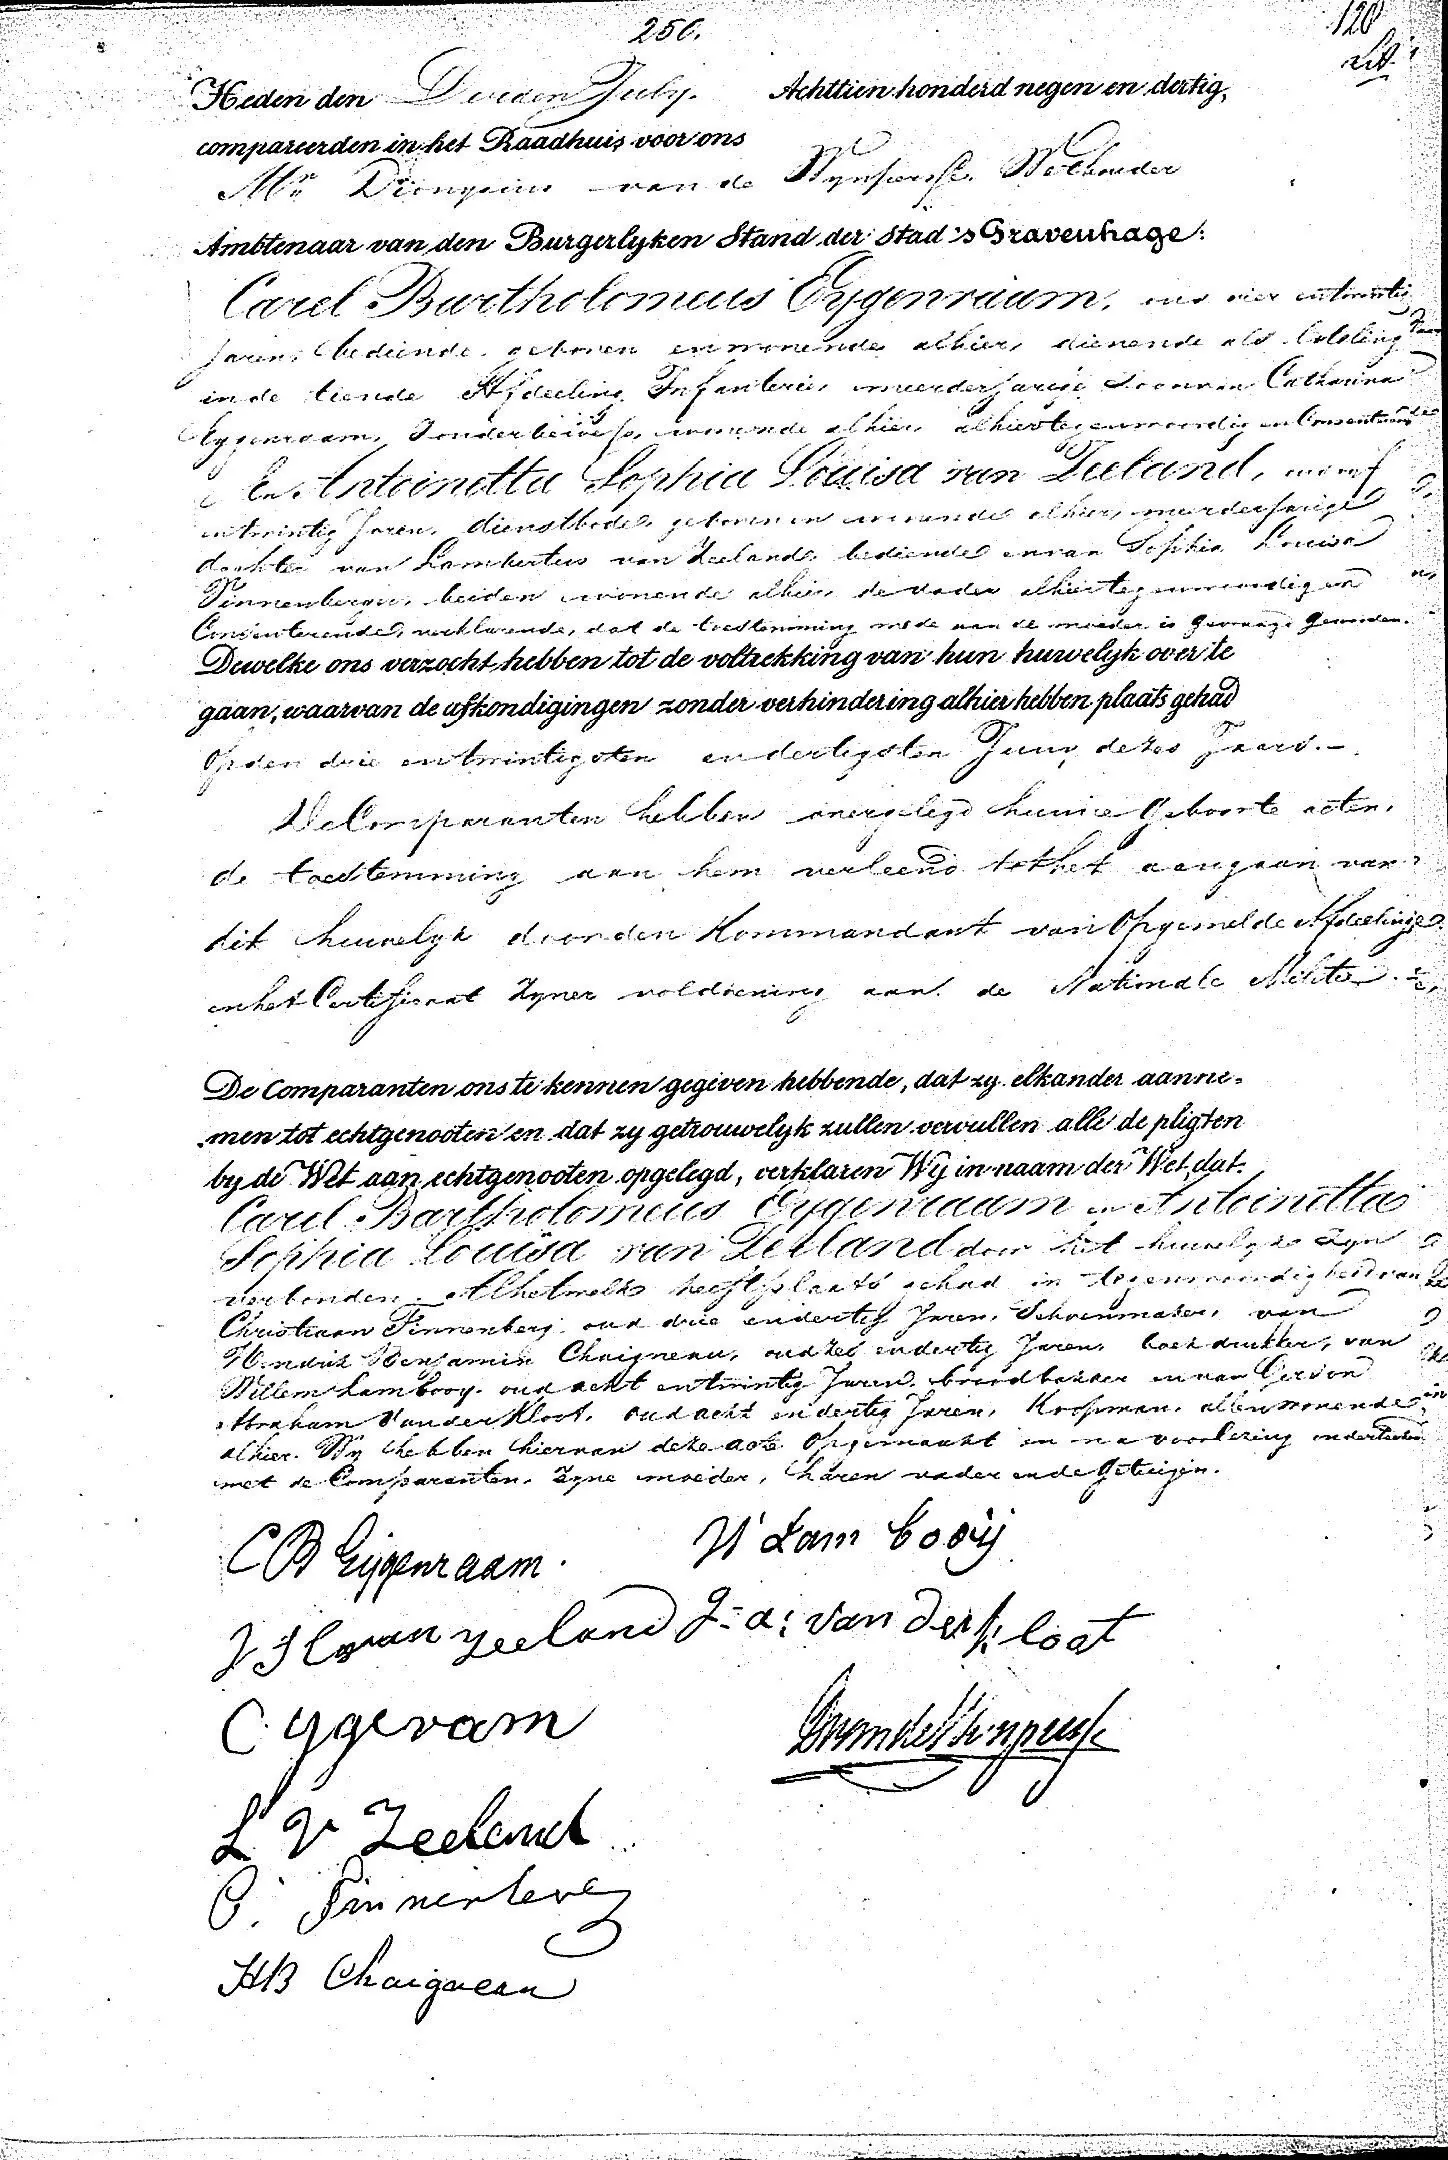 250.
120
Heden den Derden July. Achttien honderd negen en dertig,
compareerden in het Raadhuis voor ons
Mr. Dionysius van de Wynpersse, Wethouder
Ambtenaar van den Burgerlyken Stand der Stad 's Gravenhage:
Carel Bartholomeus Eygenraam, oud vier entwintig
Jaren, bediende, geboren enwonende alhier, dienende als Loteling
in de tiende Afdeeling Infanterie, meerderjarige Zoon van Catharina
Eygenraam, Zonder beroep, wonende alhier, alhier tegenwoordig en Consenterende
En Antoinetta Sophia Louisa van Zeeland, oud
entwintig Jaren, dienstbode, geboren en wonende alhier, meerderjarige
dochter van Lambertus van Zeeland, bediende en van Sophia Louisa
Finnenberg, beiden wonende alhier, de vader alhier tegenwoordig en
Consenterende, verklarende, dat de toestemming mede aan de moeder is gevraagd geworden.
Dewelke ons verzocht hebben tot de voltrekking van hun huwelyk over te
gaan, waarvan de afkondigingen zonder verhindering alhier hebben plaats gehad
Op den drie entwintigsten en dertigsten Juny dezes Jaars.
De Comparanten hebben overgelegd hunne Geboorte acten,
de toestemming aan hem verleend tot het aangaan van
dit huwelyk door den Kommandant van Opgemelde Afdeeling
en het Certificaat Zyner voldoening aan de Nationale Militie.
De Comparanten ons te kennen gegeven hebbende, dat zy elkander aanne-
men tot echtgenooten en dat zy getrouwelyk zullen vervullen alle de pligten
by de Wet aan echtgenooten opgelegd, verklaren Wy in naam der Wet, dat
Carel Bartholomeus Eygenraam en Antoinetta
Sophia Louisa van Zeeland door het huwelyk zyn
verbonden. Alhetwelk heeft plaats gehad in tegenwoordigheid van
Christiaan Finnenberg, oud drie en dertig Jaren, Schoenmaker, van
Hendrik Benjamin Chaigneau, oud zes en dertig Jaren, boekdrukker, van
Willem Lambooy, oud acht entwintig Jaren, broodbakker en van Gerson
Abraham Vander Kloot, oud acht en dertig Jaren, Koopman, allen wonende
alhier. Wy hebben hiervan deze acte opgemaakt en na voorlezing onderteekend
met de Comparanten, Zyne moeder, haren vader en de Getuigen.
C B Eijgenraam. W Lam booij
van Zeeland G: a: van Der kloot
C. ygeram
L V Zeeland
C. Finnenberg
HB Chaigneau